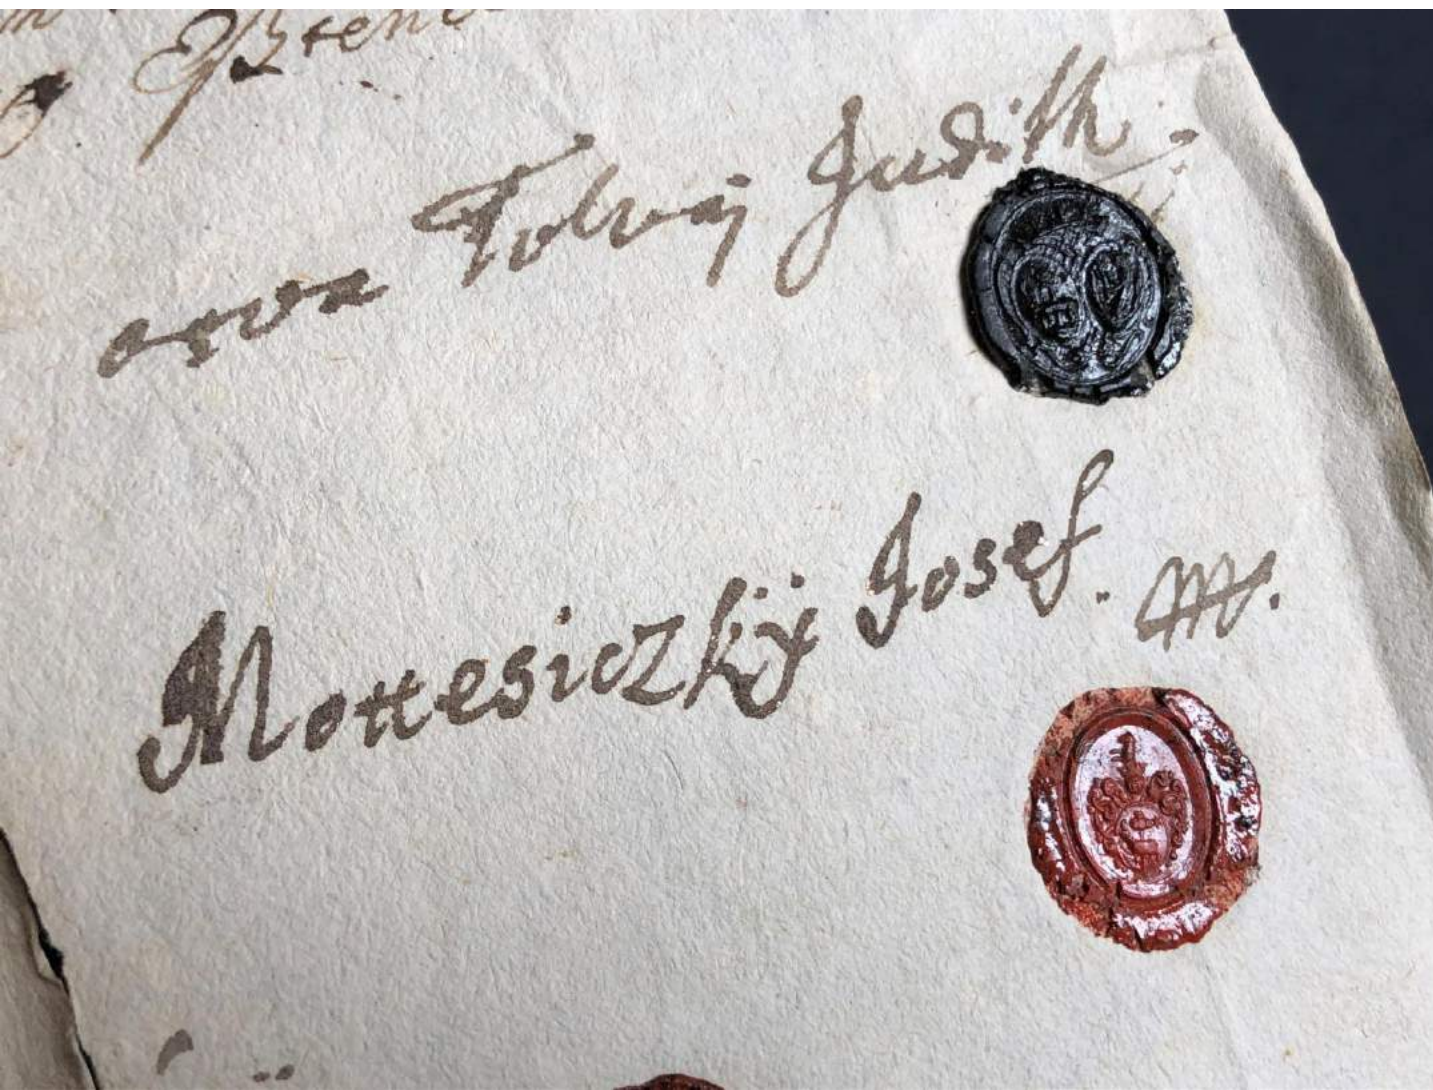 Isten
árva Tolvaj Judith.
Mottesiczkÿ Josef. mp.